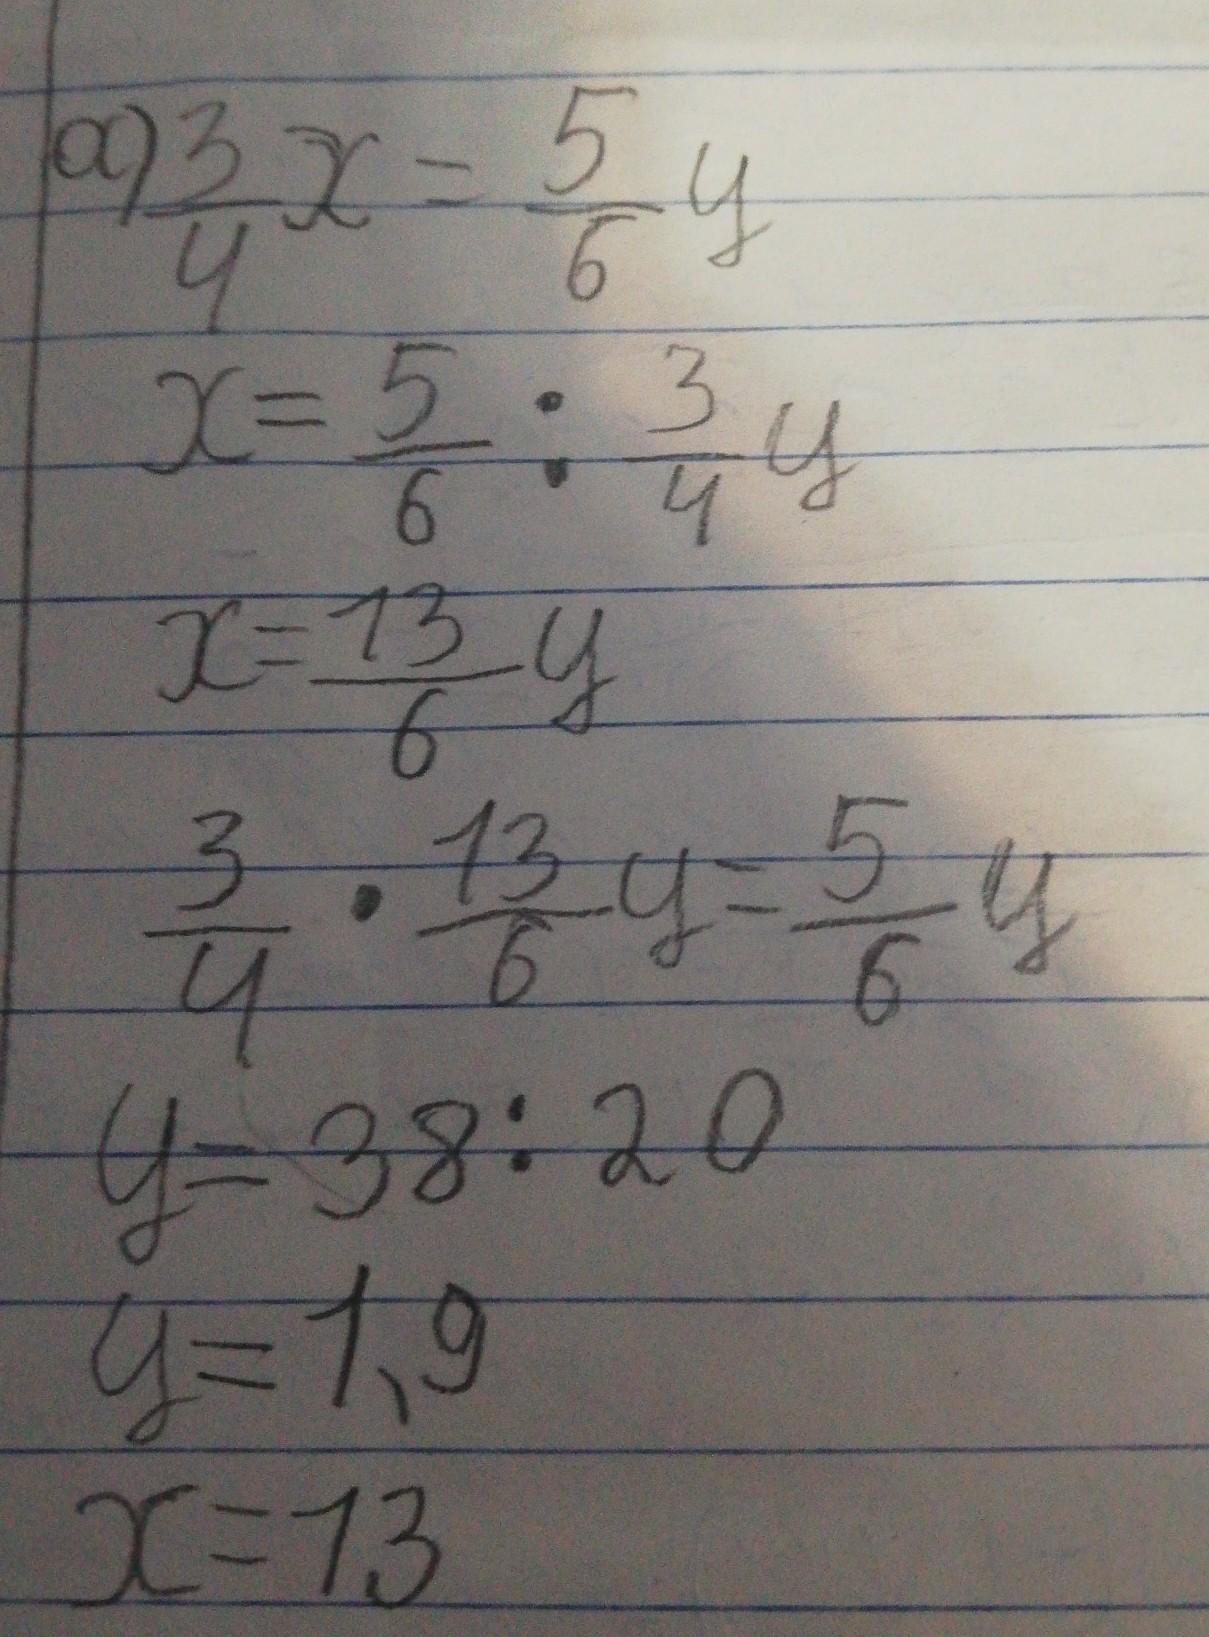 а) 3/4 x = 5/6 y
x = 5/6 : 3/4 y
x = 13/6 y
3/4 · 13/6 y = 5/6 y
y = 38 : 20
y = 1,9
x = 13